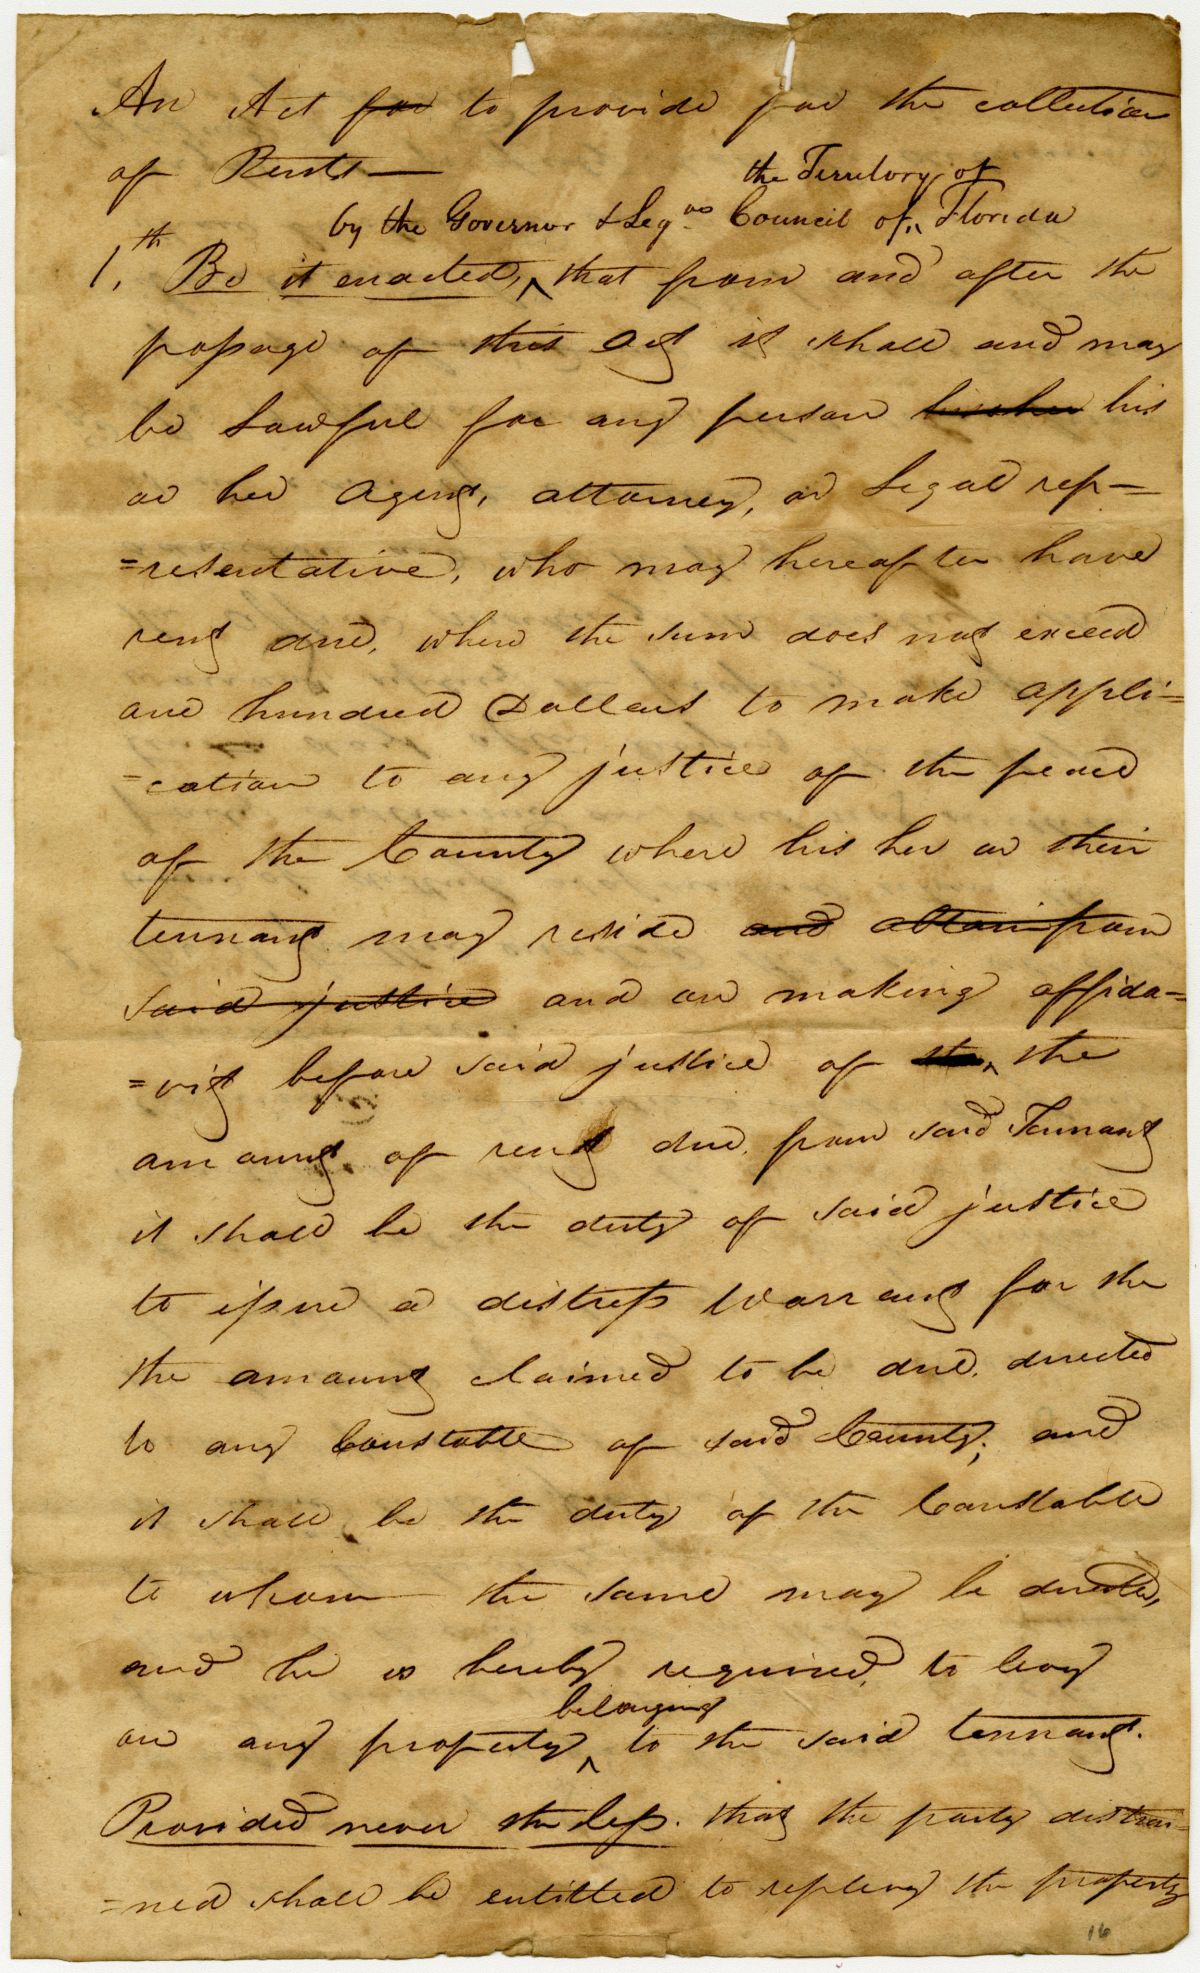 An Act for to provide for the collection
of Rents—
the Territory of
by the Governor & Legve Council of ^ Florida
1.th Be it enacted, ^ that from and after the
passage of this Act it shall and may
be Lawful for any person his her his
or her Agent, attorney, or Legal rep-
=resentative, who may hereafter have
rent due, where the sum does not exceed
one hundred Dollars to make appli=
=cation to any justice of the peace
of the County where his her or their
tennant may reside and obtain from
said justice and on making affida=
=vit before said justice of the ^ the
amount of rent due from said Tennant
it shall be the duty of said justice
to issue a distress Warrant for the
the amount claimed to be due, directed
to any Constable of said County; and
it shall be the duty of the Constable
to whom the same may be directed,
and he is hereby required, to levy
belonging
on any property ^ to the said tennant.
Provided never the less. that the party distrai=
=ned shall be entitled to replevy the property
16